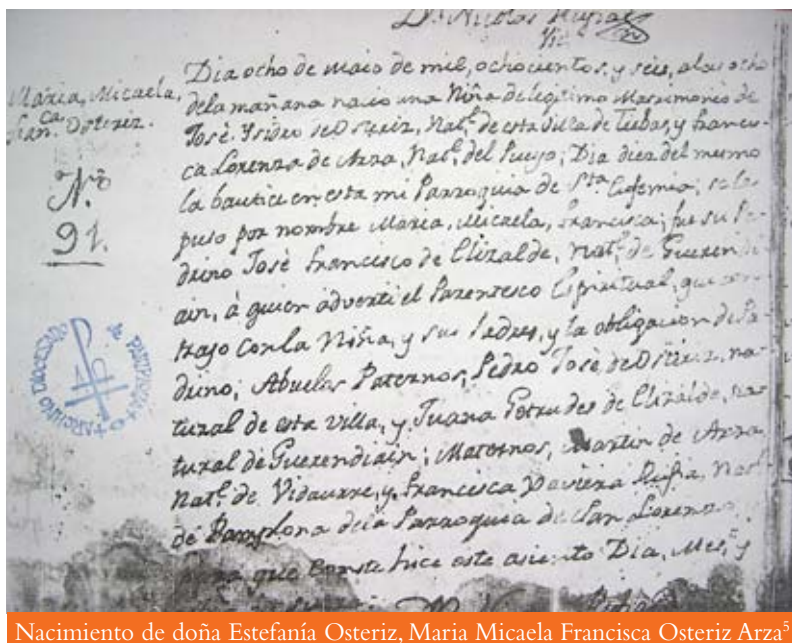 Dn. Nicolas
Vic.
Maria, Micaela,
Franca. Osteriz.
No.
91.
Dia ocho de maio de mil, ochocientos, y seis, a las ocho
dela mañana nacio una Niña de legitimo Matrimonio de
Josè Ysidro de Osteriz, Natl. de esta villa de Tiebas, y Francis-
ca Lorenza de Arza, Natl. del Pueyo; Dia diez del mismo
la bauticè en esta mi Parroquia de Sta. Eufemia; se la
puso por nombre Maria, Micaela, Francisca; fue su Pa-
drino Josè Francisco de Elizalde, Natl. de Guerendi-
ain, à quien adverti el Parentesco Espiritual, que con-
trajo con la Niña, y sus Padres, y la obligacion de Pa-
drino; Abuelos Paternos, Pedro Josè de Osteriz, na-
tural de esta villa, y Juana de Elizalde, na-
tural de Guerendiain; Maternos, Martin de Arza
Natl. de Vidaurre, y Francisca Xaviera Natl.
de Pamplona dela Parroquia de San Lorenzo
para que conste hice este asiento Dia, Mes, y
ARCHIVO DIOCESANO de PAMPLONA
Nacimiento de doña Estefanía Osteriz, Maria Micaela Francisca Osteriz Arza5